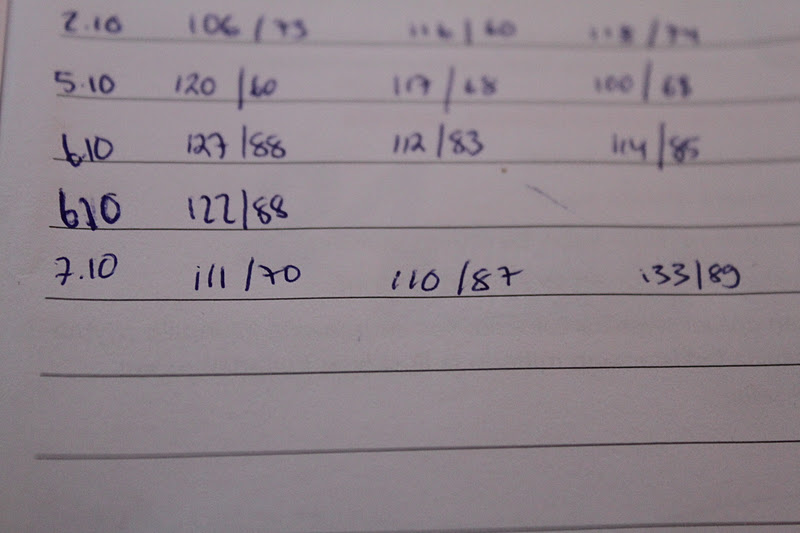 2.10 106/73 116/60 118/74
5.10 120/60 117/68 100/68
6.10 127/88 112/83 114/85
6.10 122/88
7.10 111/70 110/87 133/89